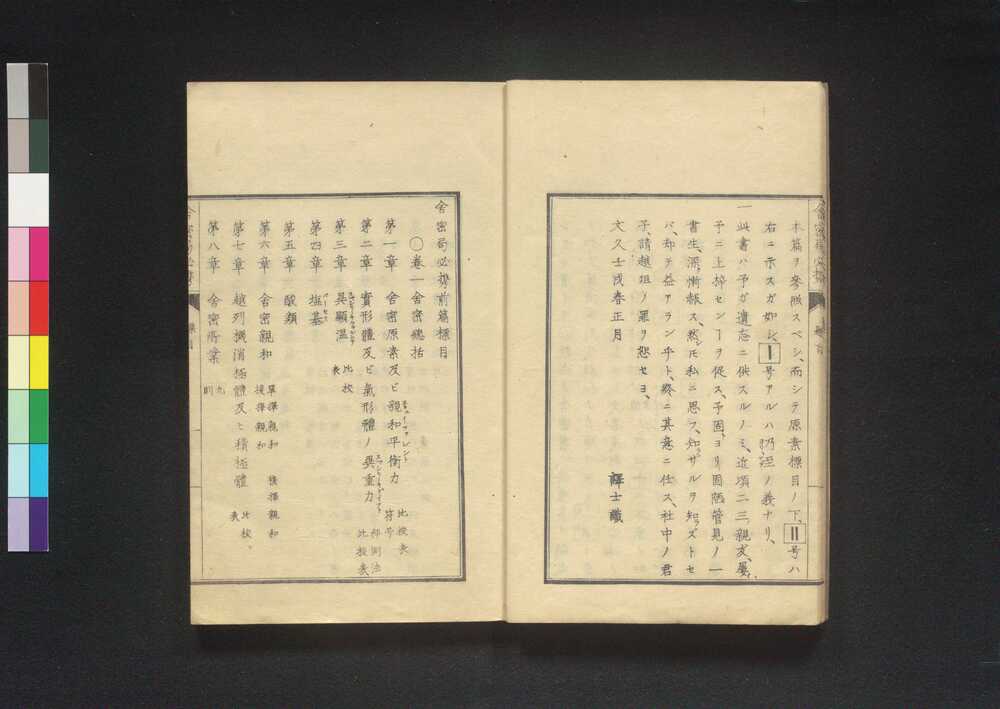 本篇ヲ參照スベシ、而シテ原素標目ノ下、II号ハ
右ニ示スガ如シ、I号アルハ乃チ沍ノ義ナリ、
一此書ハ予ガ遺忘ニ供スルノミ、近頃二三親友、屢
予ニ上梓センヿヲ促ス、予固ヨリ固陋管見ノ一
書生、深慚赧ス、然レモ私ニ思フ、知ザルヲ知ズトセ
バ、却テ益アラン乎ト、終ニ其意ニ任ス、社中ノ君
子、請越俎ノ罪ヲ恕セヨ、
文久壬戌春正月
譯士識
舎密局必携前篇標目
〇卷一 舎密總括
第一章 舎密原素及ビ親和平衡力 符号 比挍表
第二章 實形體及ビ氣形體ノ異重力 秤測法 比挍表
第三章 異顯溫 比挍表
第四章 塩基
第五章 酸類
第六章 舎密親和 單擇親和 複擇親和
第七章 越列機消極體及ヒ積極體 比挍表
第八章 舎密所業 九則